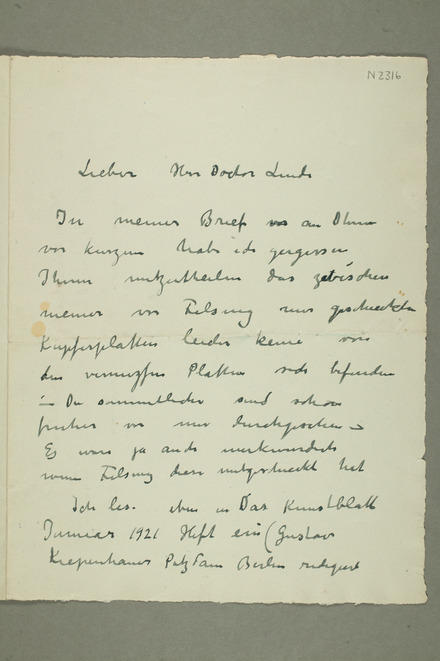 N2316
Lieber Herr Doctor Linde
In meiner Brief an Ihnen
vor kurzem habe ich vergessen
Ihnen mitzutheilen das zwischen
meiner von Felsing mir geschickten
Kupferplatten leider keine von
den Platten sich befinden
– Die sammtliche sind schon
früher von mir durchgesehen –
Es war ja auch merkwürdich
wenn Felsing diese mitgeschickt hat
Ich lese eben in Das Kunstblatt
Januar 1921 Heft ein (Gustav
Kiepenhauer Potzdam Berlin redigiert